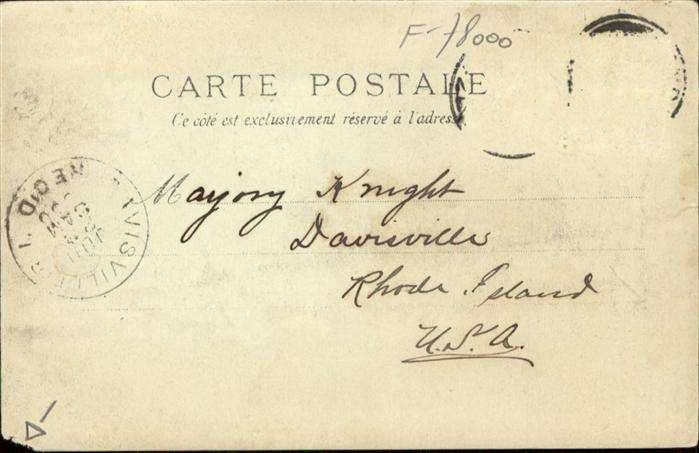 F-78000
CARTE POSTALE
Ce côté est exclusivement réservé à l'adresse
Marjory Knight
Davisville
Rhode Island
U.S.A.
DAVISVILLE R.I.
REC'D